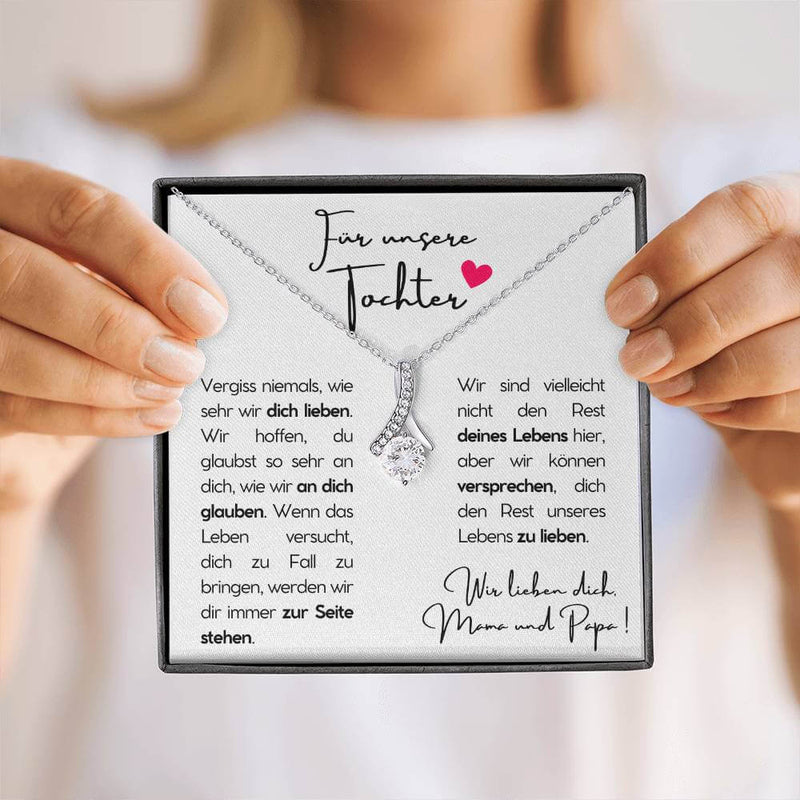 Für unsere
Tochter
Vergiss niemals, wie
sehr wir dich lieben.
Wir hoffen, du
glaubst so sehr an
dich, wie wir an dich
glauben. Wenn das
Leben versucht,
dich zu Fall zu
bringen, werden wir
dir immer zur Seite
stehen.
Wir sind vielleicht
nicht den Rest
deines Lebens hier,
aber wir können
versprechen, dich
den Rest unseres
Lebens zu lieben.
Wir lieben dich,
Mama und Papa!